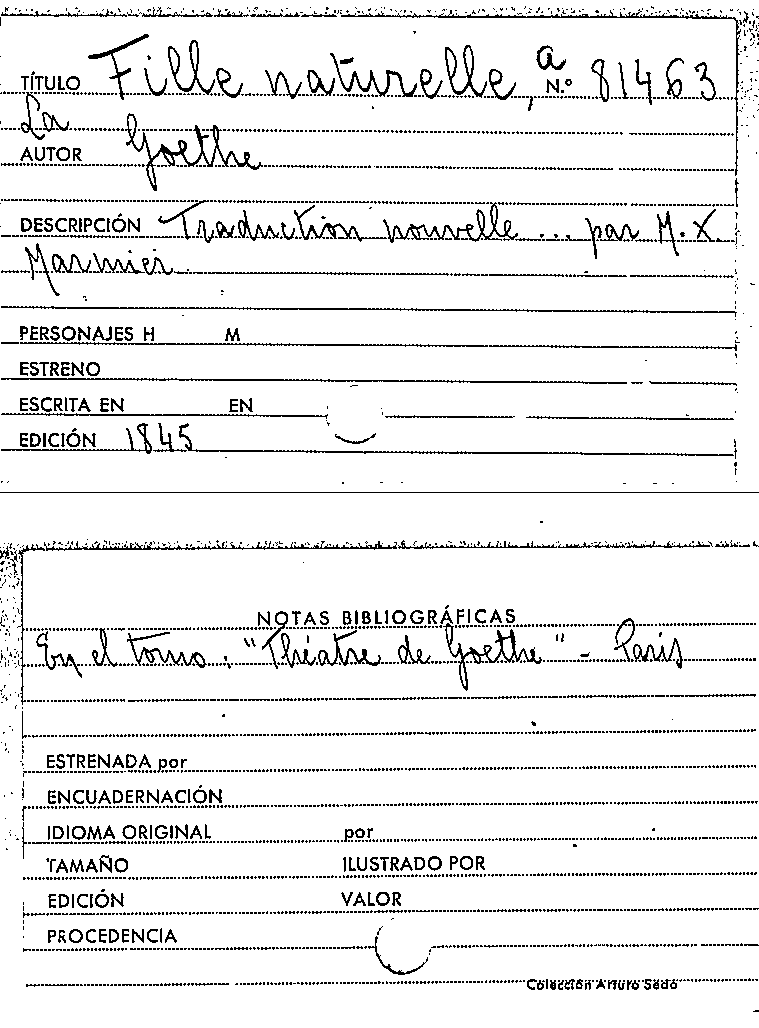 TÍTULO Fille naturelle, a N.º 81463
La
AUTOR Goethe
DESCRIPCIÓN Traduction nouvelle ... par M. X.
Marmier
PERSONAJES H M
ESTRENO
ESCRITA EN EN
EDICIÓN 1845
NOTAS BIBLIOGRÁFICAS
En el tomo: "Théatre de Goethe" - Paris
ESTRENADA por
ENCUADERNACIÓN
IDIOMA ORIGINAL por
TAMAÑO ILUSTRADO POR
EDICIÓN VALOR
PROCEDENCIA
Colección Arturo Sedó